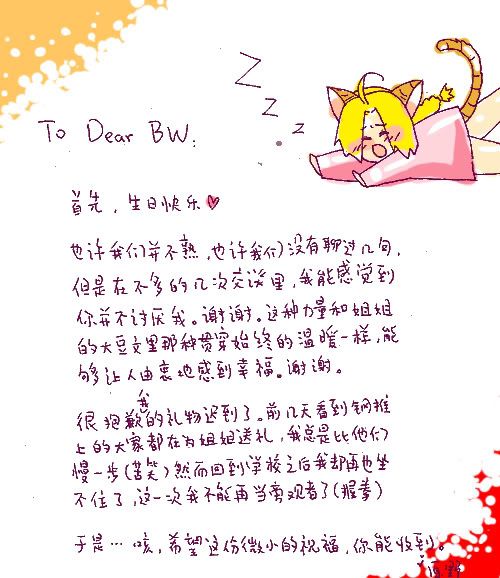 Z
Z
z
To Dear BW.
首先，生日快乐♥
也许我们并不熟，也许我们没有聊过几句，
但是在不多的几次交谈里，我能感觉到
你并不讨厌我。谢谢。这种力量和姐姐
的大豆文里那种贯穿始终的温暖一样，能
够让人由衷地感到幸福。谢谢。
我
很抱歉的礼物迟到了。前几天看到钢推
上的大家都在为姐姐送礼，我总是比他们
慢一步（苦笑）然而回到学校之后我却再也坐
不住了，这一次我不能再当旁观者了（握拳）
于是…咳，希望这份微小的祝福，你能收到。